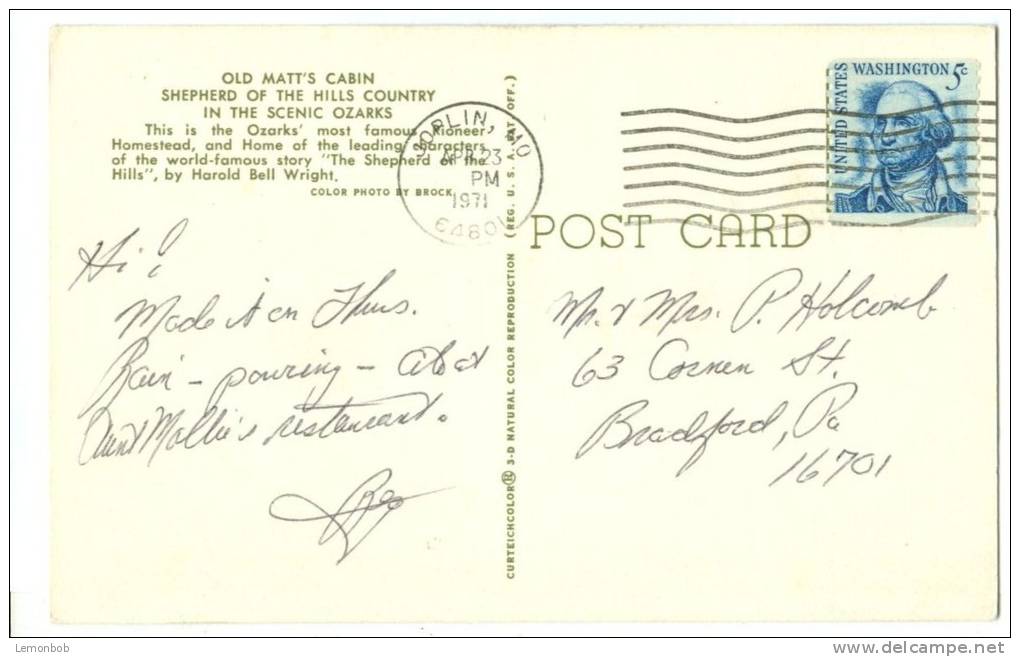 OLD MATT'S CABIN
SHEPHERD OF THE HILLS COUNTRY
IN THE SCENIC OZARKS
This is the Ozarks' most famous Pioneer
Homestead, and Home of the leading characters
of the world-famous story "The Shepherd of the
Hills", by Harold Bell Wright.
COLOR PHOTO BY BROCK
JOPLIN, MO
APR 23
PM
1971
64801
UNITED STATES
WASHINGTON 5c
POST CARD
CURTEICHCOLOR® 3-D NATURAL COLOR REPRODUCTION (REG. U. S. A. PAT. OFF.)
Hi!
Made it on Thurs.
Rain - pouring - at
Aunt Mollie's restaurant.
Mr. & Mrs. P. Holcomb
63 Corner St.
Bradford, Pa
16701
Lemonbob
delcampe.net